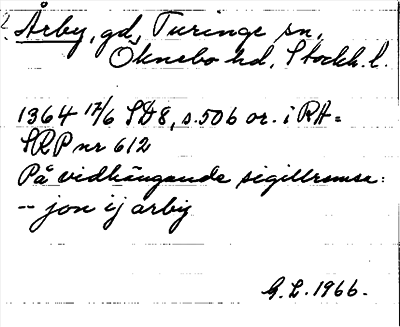 2. Årby, gd, Turinge sn,
Öknebo hd, Stockh. l.
1364 17/6 SD8, s. 506 or. i RA =
SRP nr 612
På vidhängande sigillremsa:
-- jon ij arby
G. L. 1966.